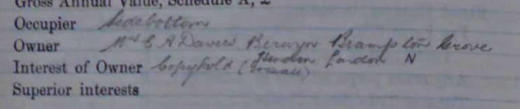 Gross Annual Value, Schedule A, £
Occupier Sidebottom
Owner Mrs E A Davies Berwyn Brampton Grove
Interest of Owner Copyhold ( Hendon London N
Superior interests